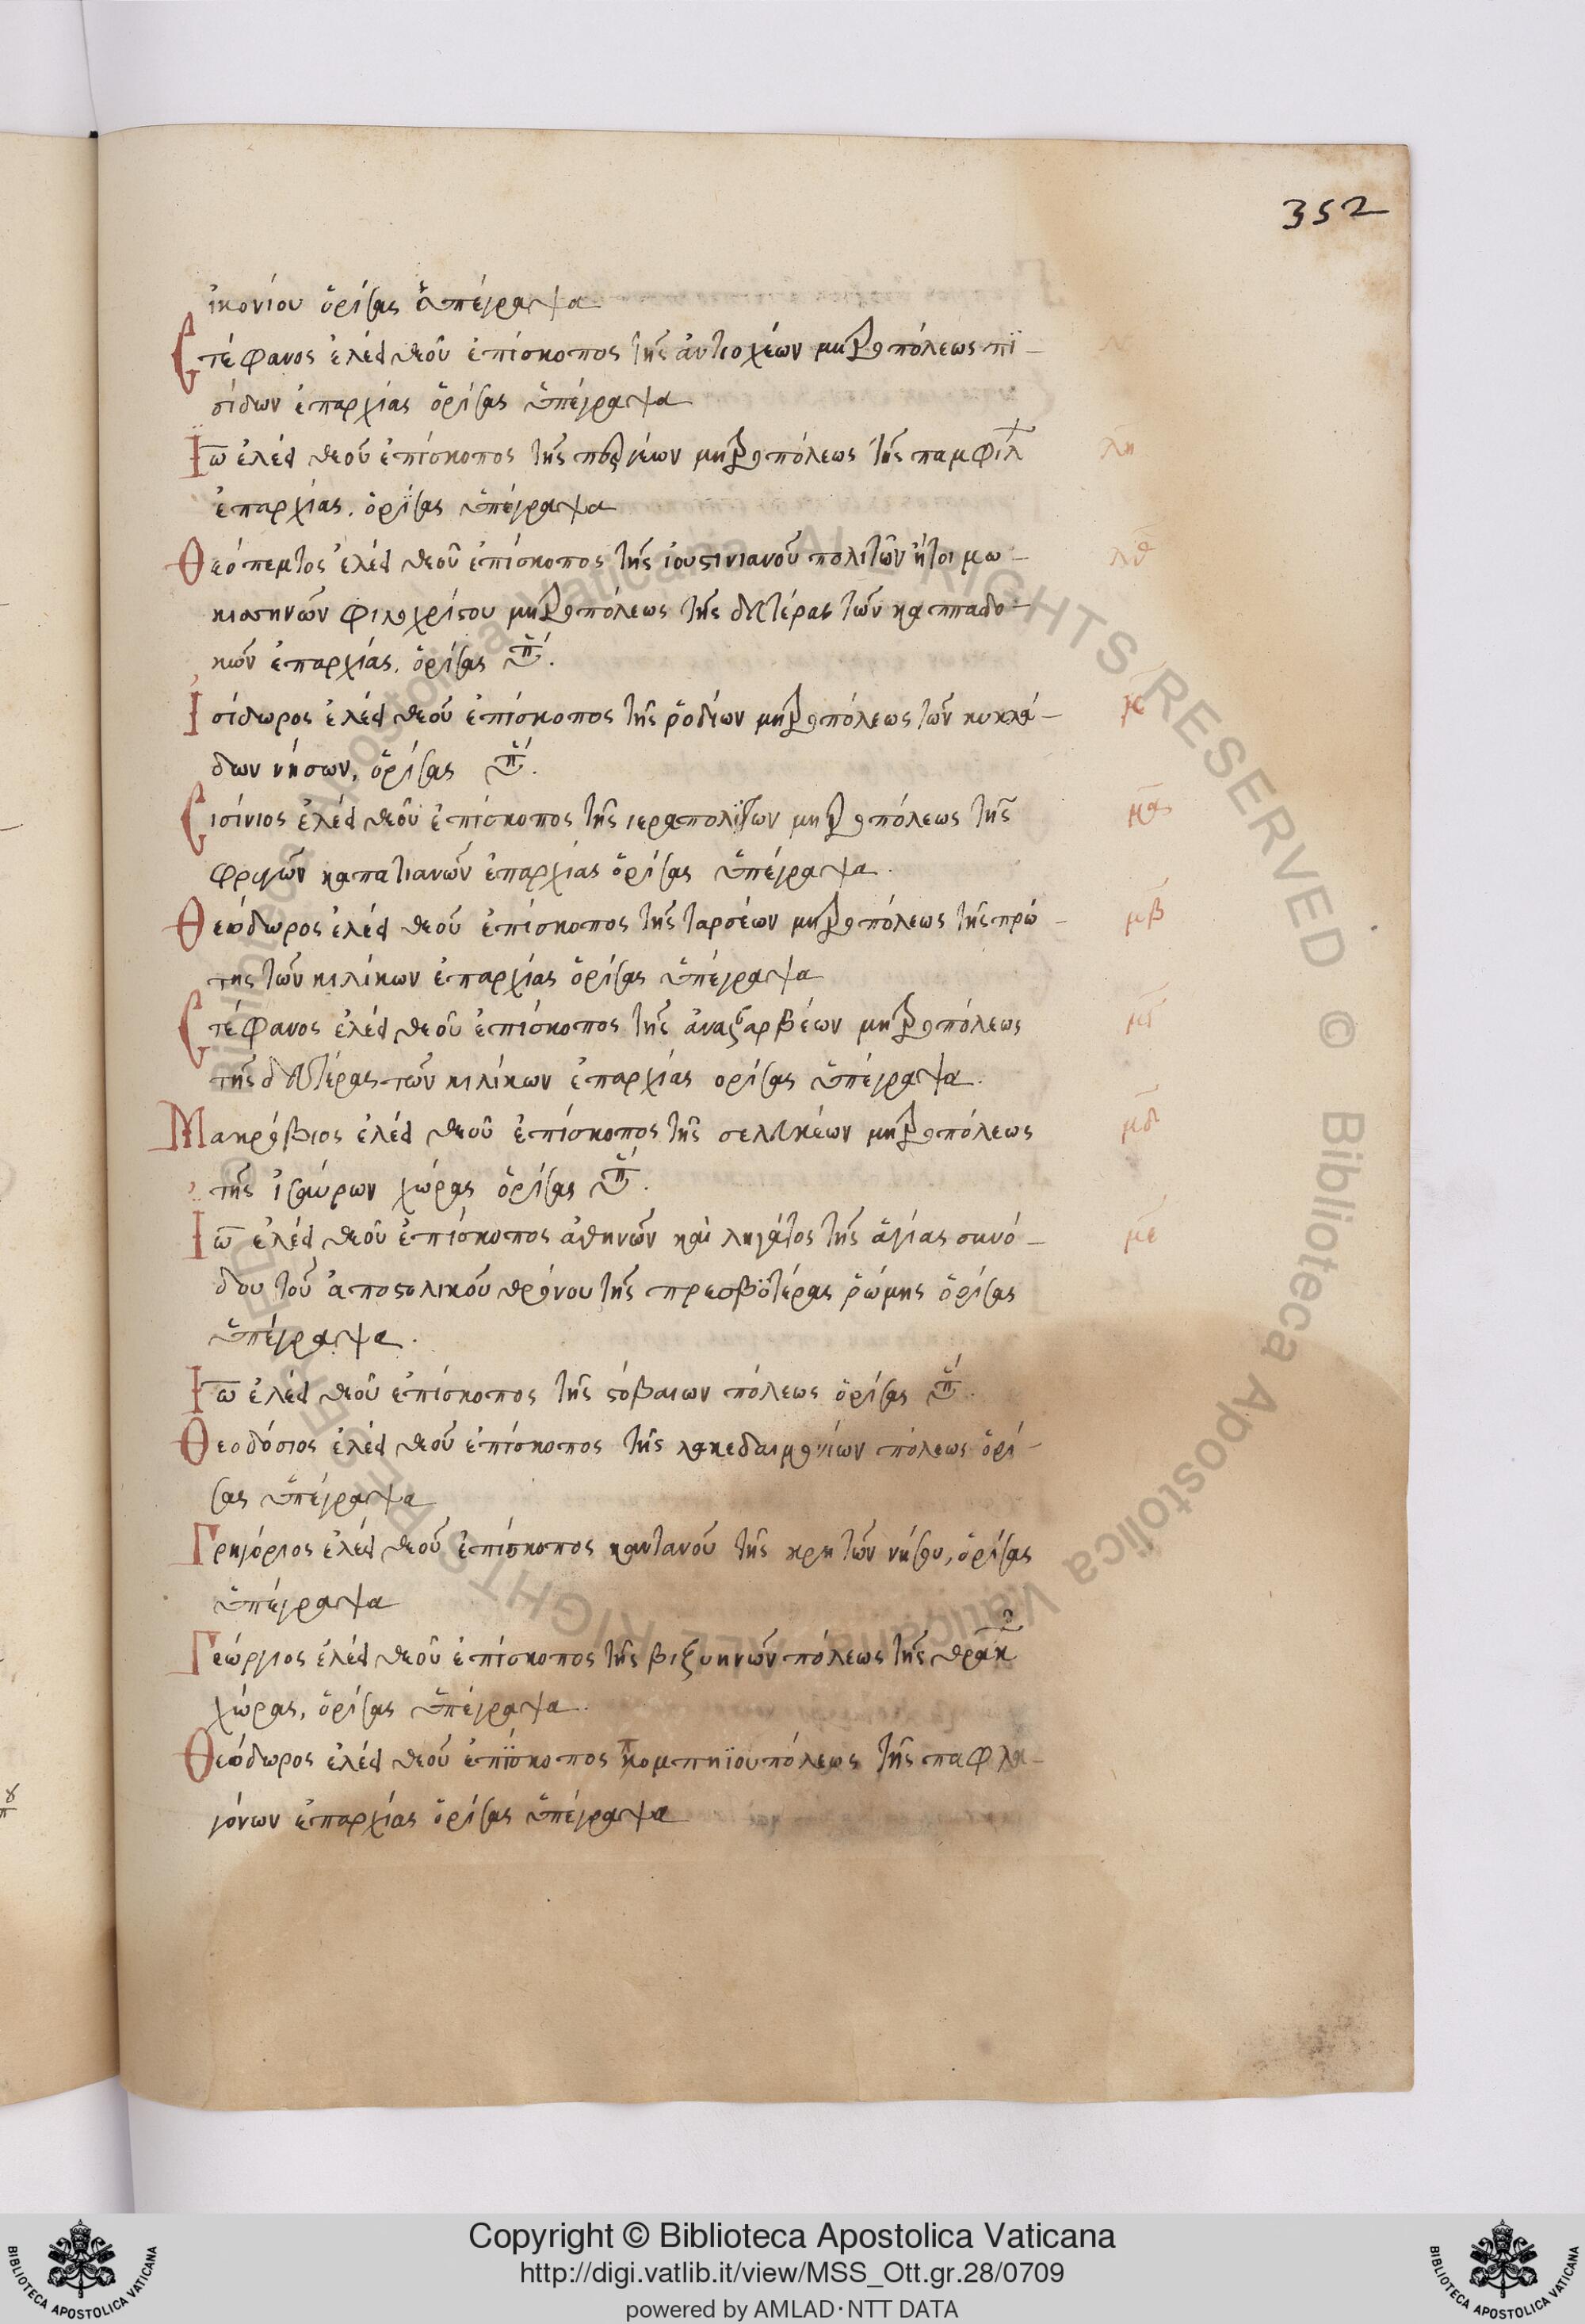 352
ἰκονίου ὁρίσας ὑπέγραψα
Στέφανος ἐλέει θεοῦ ἐπίσκοπος τῆς ἀντιοχέων μητροπόλεως πϊ-
σίδων ἐπαρχίας ὁρίσας ὑπέγραψα
Ἰω ἐλέει θεοῦ ἐπίσκοπος τῆς περγέων μητροπόλεως τῆς παμφιλ λη
ἐπαρχίας. ὁρίσας ὑπέγραψα
Θεόπεμτος ἐλέει θεοῦ ἐπίσκοπος τῆς ἰουστινιανουπολιτῶν ἤτοι μω- λθ
κισηνῶν φιλοχρίστου μητροπόλεως τῆς δευτέρας τῶν καππαδο-
κῶν ἐπαρχίας. ὁρίσας ὑπ.
Ἰσίδωρος ἐλέει θεοῦ ἐπίσκοπος τῆς ῥοδίων μητροπόλεως τῶν κυκλά-
δων νήσων, ὁρίσας ὑπ.
Σισίνιος ἐλέει θεοῦ ἐπίσκοπος τῆς ιεραπολϊτῶν μητροπόλεως τῆς μα
φρυγῶν καπατιανῶν ἐπαρχίας ὁρίσας ὑπέγραψα.
Θεόδωρος ἐλέει θεοῦ ἐπίσκοπος τῆς ταρσέων μητροπόλεως τῆς πρώ- μβ
της τῶν κιλίκων ἐπαρχίας ὁρίσας ὑπέγραψα
Στέφανος ἐλέει θεοῦ ἐπίσκοπος τῆς ἀναζαρβέων μητροπόλεως μγ
τῆς δευτέρας τῶν κιλίκων ἐπαρχίας ορίσας ὑπέγραψα.
Μακρόβιος ἐλέει θεοῦ ἐπίσκοπος τῆς σελευκέων μητροπόλεως μδ
τῆς ἰσαύρων χώρας ὁρίσας ὑπ.
Ἰω ἐλέει θεοῦ ἐπίσκοπος ἀθηνῶν καὶ ληγάτος τῆς ἁγίας συνό- με
δου τοῦ ἀποστολικοῦ θρόνου τῆς πρεσβϋτέρας ῥώμης ὁρίσας
ὑπέγραψα.
Ἰω ἐλέει θεοῦ ἐπίσκοπος τῆς στόβαιων πόλεως ὁρίσας ὑπ.
Θεοδόσιος ἐλέει θεοῦ ἐπίσκοπος τῆς λακεδαιμονίων πόλεως ὁρί-
σας ὑπέγραψα
Γρηγόριος ἐλέει θεοῦ ἐπίσκοπος καντανοῦ τῆς κρητῶν νήσου, ὁρίσας
ὑπέγραψα
Γεώργιος ἐλέει θεοῦ ἐπίσκοπος τῆς βιζυηνῶν πόλεως τῆς θρακ
χώρας, ὁρίσας ὑπέγραψα.
Θεόδωρος ἐλέει θεοῦ ἐπϊσκοπος πομπηϊουπόλεως τῆς παφλα-
γόνων ἐπαρχίας ὁρίσας ὑπέγραψα
© Biblioteca Apostolica Vaticana ALL RIGHTS RESERVED © Biblioteca Apostolica Vaticana ALL RIGHTS RESERVED
Copyright © Biblioteca Apostolica Vaticana
http://digi.vatlib.it/view/MSS_Ott.gr.28/0709
powered by AMLAD·NTT DATA
BIBLIOTECA APOSTOLICA VATICANA
BIBLIOTECA APOSTOLICA VATICANA